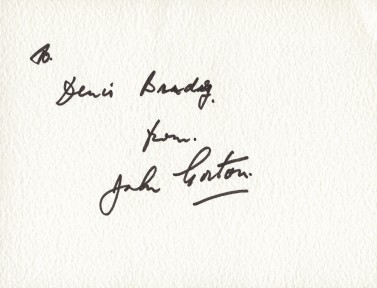 To
Denis
from.
John Gorton.